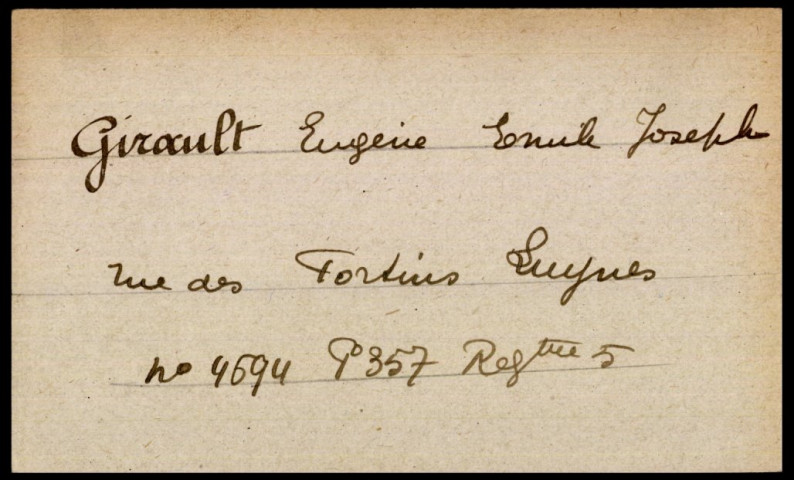 Girault Eugène Emile Joseph
rue des Fortins Luynes
no 4694 P° 357 Regtre 5